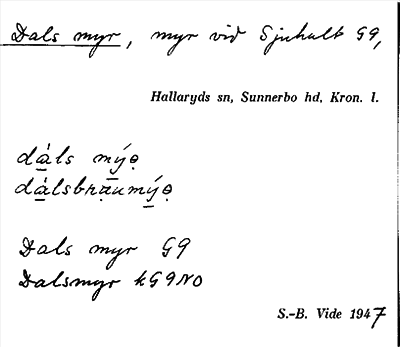 Dals myr, myr vid Sjuhult G9,
Hallaryds sn, Sunnerbo hd, Kron. l.
dà̱ls mý̱ə̣
dà̱lsbrạumý̱ə̣
Dals myr G9
Dalsmyr kG9NO
S.-B. Vide 1947